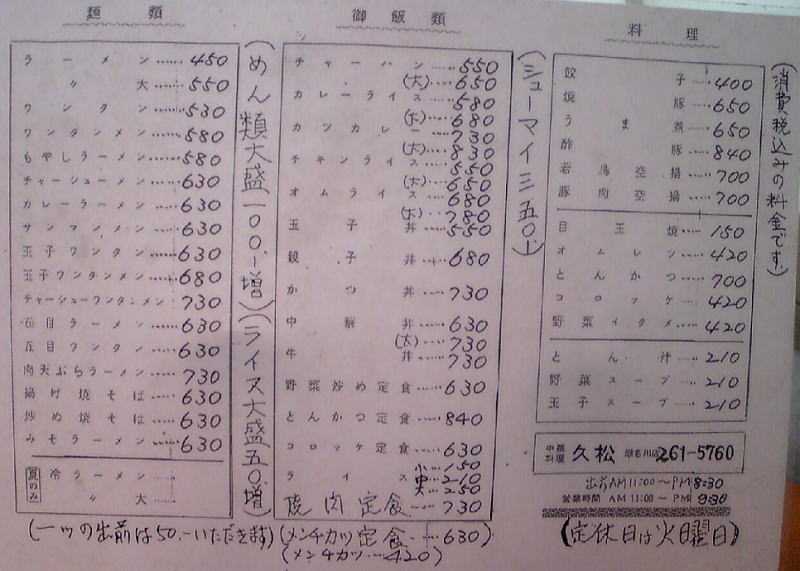 麺類
ラーメン……450
〃 大……550
ワンタン……530
ワンタンメン……580
もやしラーメン……580
チャーシューメン……630
カレーラーメン……630
サンマンメン……630
玉子ワンタン……630
玉子ワンタンメン……680
チャーシューワンタンメン…730
五目ラーメン……630
五目ワンタン……630
肉天ぷらラーメン……730
揚げ焼そば……630
炒め焼そば……630
みそラーメン……630
夏のみ
冷ラーメン……
〃 大……
(めん類大盛一〇〇.-増)
(ライス大盛五〇増)
御飯類
チャーハン……550
(大)…650
カレーライス……580
(大)…680
カツカレー……730
(大)…830
チキンライス……550
(大)…650
オムライス……680
(大)…780
玉子丼……550
親子丼……680
かつ丼……730
中華丼……630
(大)…730
牛丼……730
野菜炒め定食……630
とんかつ定食……840
コロッケ定食……630
ライス 小…150
中…210
大…250
焼肉定食……730
(シューマイ三五〇上)
料理
餃子……400
焼豚……650
うま煮……650
酢豚……840
若鳥空揚……700
豚肉空揚……700
目玉焼……150
オムレツ……420
とんかつ……700
コロッケ……420
野菜イタメ……420
とん汁……210
野菜スープ……210
玉子スープ……210
(消費税込みの料金です.)
中華料理 久松 261-5760
出前AM11:00〜PM8:30
営業時間 AM11:00〜PM 9:30
(定休日は火曜日)
(一ッの出前は50.-いただきます)
(メンチカツ定食…630)
(メンチカツ…420)